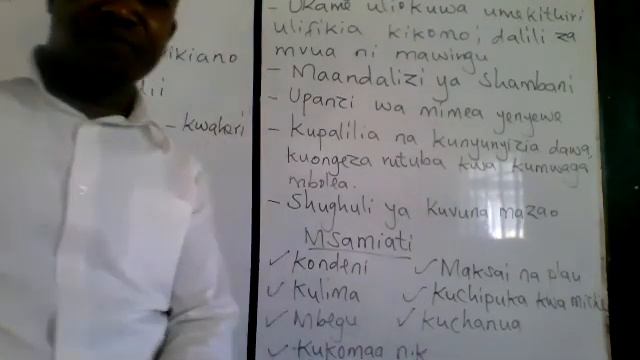 ikiano
- kwaheri
- Ukame uliokuwa umekithiri
ulifikia kikomo; dalili za
mvua ni mawingu
- Maandalizi ya shambani
- Upanzi wa mimea yenyewe
- Kupalilia na kunyunyizia dawa,
kuongeza rutuba kwa kumwaga
mbolea.
- Shughuli ya kuvuna mazao
Msamiati
✓ Kondeni
✓ Maksai na plau
✓ Kulima
✓ Kuchipuka kwa
✓ Mbegu
✓ Kuchanua
✓ Kukomaa n.k